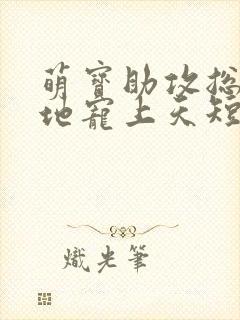 萌寶助攻總
地寵上天短
熾光筆